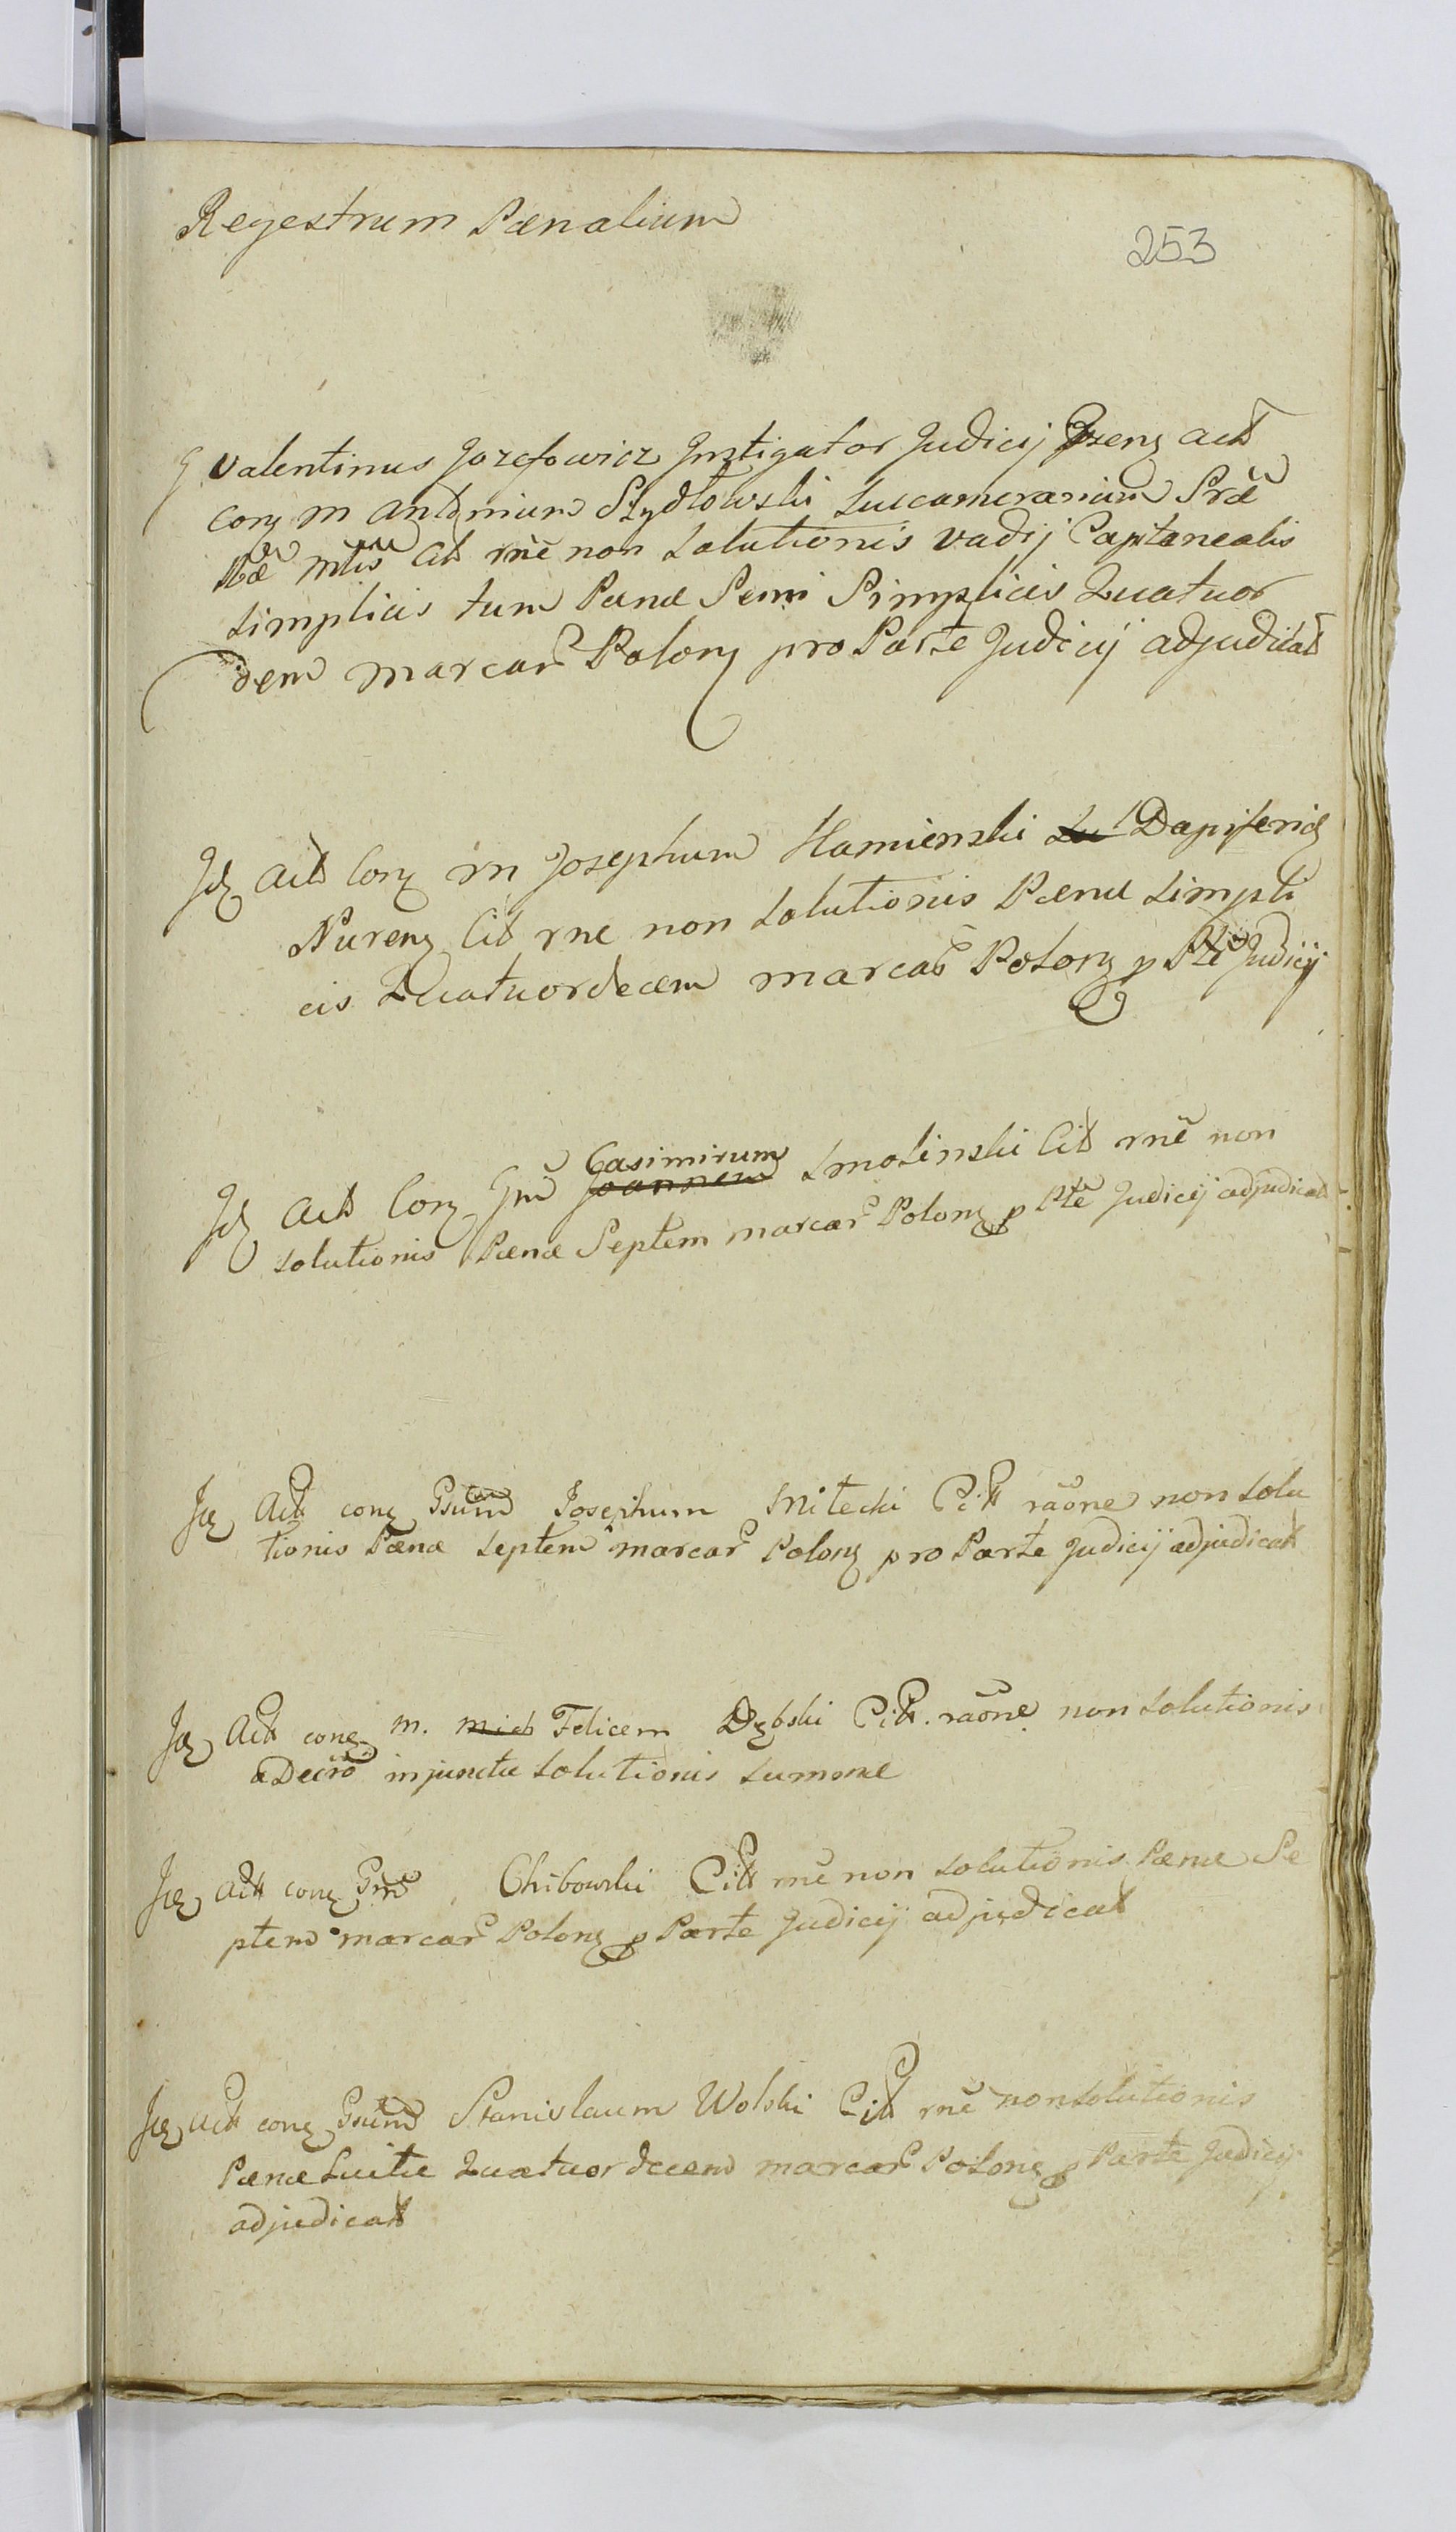 Regestrum Pænalium
253
G Valentinus Jozefowicz Instigator Judicij Pzens Act
Conz M Antonium Szydłowski Succamerarium Sræ
Rtæ Mtis Cit rñe non Solutionis Vadij Capitanealis
Simplicis tum Pænæ Semi Simplicis Quatuor
dem marcar Polonz pro Parte Judicij adjudicat
Idz Act Conz M Josephum Kamienski Dapiferidz
Nurenz Cit rñe non Solutionis Pænæ Simpli
cis Quatuordecem marcar Polonz p Pte Judicij
Idz Act Conz Gm Casimirum Smolinski Cit rñe non
solutionis Pænæ Septem marcar Polonz p Pte Judicij adjudicat
Idz Act conz Gsum Josephum Mitecki Cit raõne non solu
tionis Pænæ Septem marcar Polonz pro Parte Judicij adjudicat
Idz Act conz M. Felicem Dębski Cit. raõne non Solutionis
a Decro injunctæ Solutionis Summæ
Idz Act conz Gm Chibowski Cit rñe non Solutionis Pænæ Se
ptem marcar Polonz p Parte Judicij adjudicat
Idz Act conz Gsum Stanislaum Wolski Cit rñe non solutionis
Pænæ Luitæ Quatuordecem marcar Polonz p Parte Judicij
adjudicat